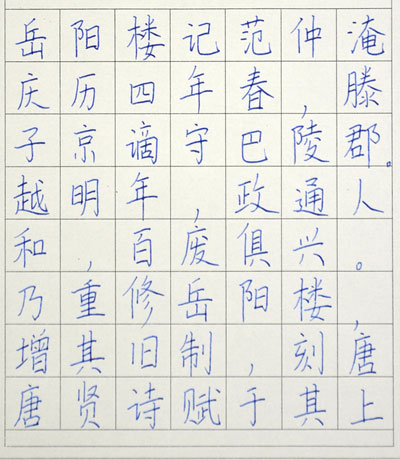 岳阳楼记范仲淹
庆历四年春，滕
子京谪守巴陵郡。
越明年，政通人
和，百废俱兴。
乃重修岳阳楼，
增其旧制，刻唐
唐贤诗赋于其上